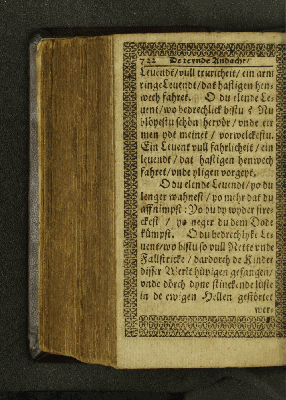 722 De teynde Andacht/
Leuendt/ vull truricheit/ ein arm
ringe Leuendt/ dat hastigen hen-
wech fahret. O du elende Le-
uent/ wo bedrechlick bistu? Nu
blöyestu schön hervör/ vnde eer
men ydt meinet/ vorwelckestu.
Ein Leuent vull fahrlicheit/ ein
leuendt/ dat hastigen henwech
fahret/ vnde yligen vorgeyt.
O du elende Leuendt/ yo du
lenger wahrest/ yo mehr dat du
affnimpst: Yo du dy wyder stre-
ckest/ yo neger du dem Dode
kümpst. O du bedrechlyke Le-
uent/ wo bistu so vull Nette vnde
Fallstricke/ dardorch de Kinder
disser Werlt hüpigen gefangen/
vnde dörch dyne stinckende lüste
in de ewigen Hellen gestörtet
wer-